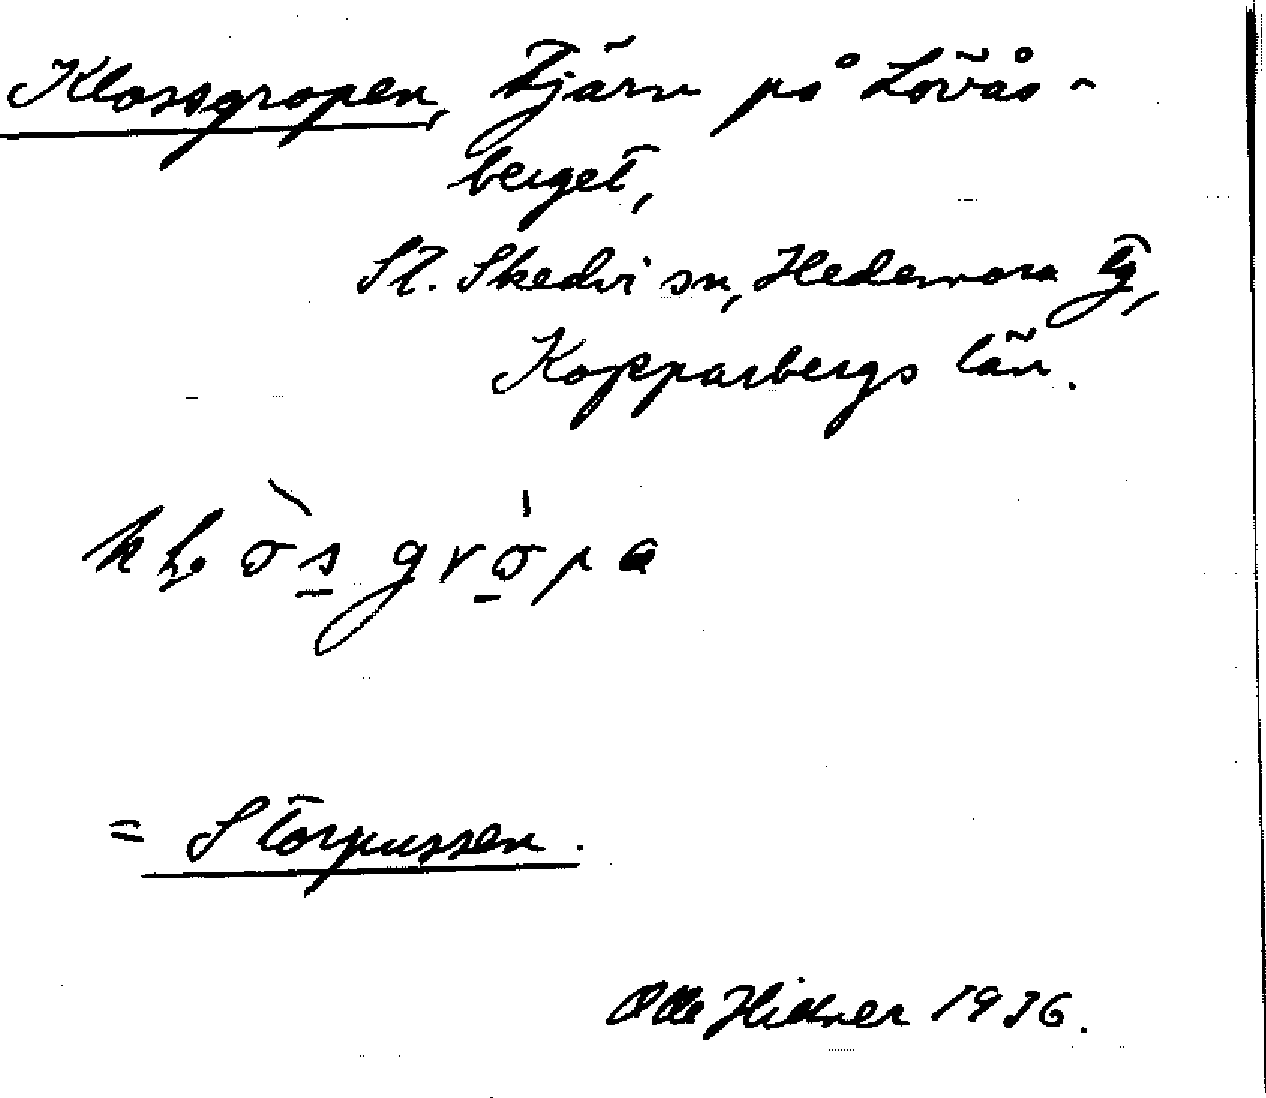 Klossgropen, tjärn på Lövås-
berget,
St. Skedvi sn, Hedemora tg,
Kopparbergs län.
= Storpussen.
Olle Hillner 1936.